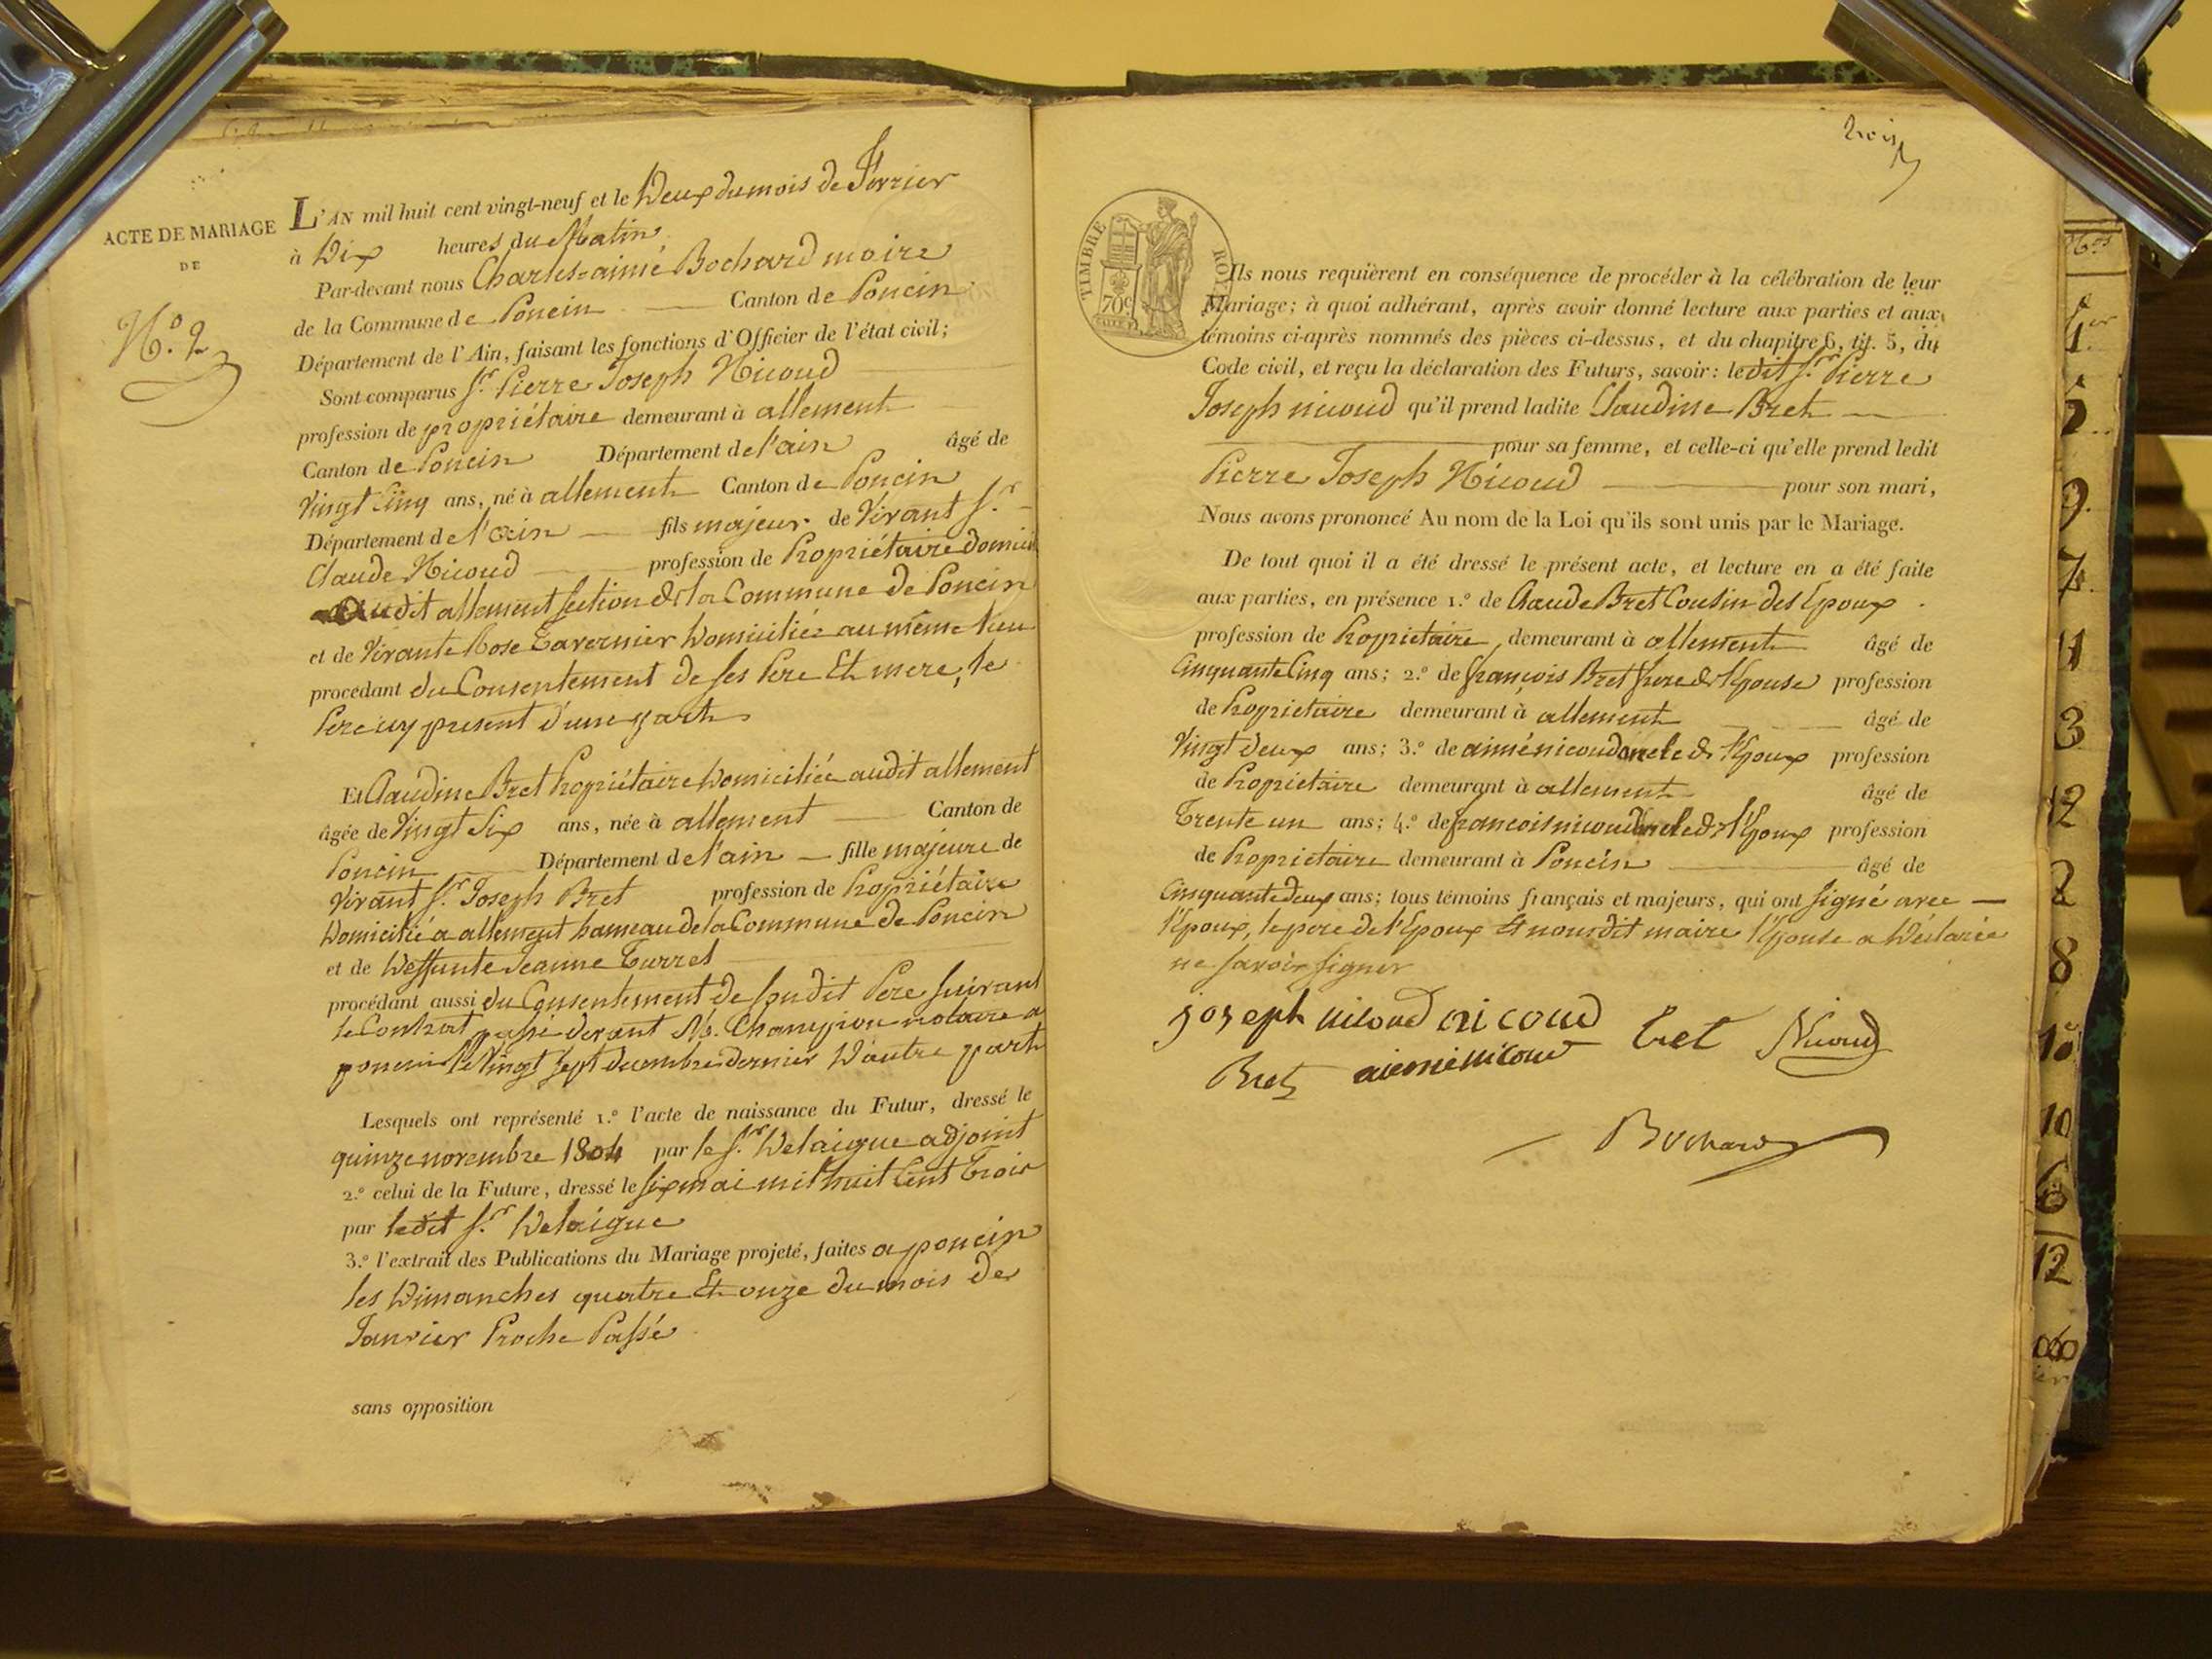 ACTE DE MARIAGE
DE
N.º 2
L'AN mil huit cent vingt-neuf et le Deux du mois de Fevrier
à Dix heures du Matin
Par-devant nous Charles-aimé Bochard maire
de la Commune de Poncin Canton de Poncin
Département de l'Ain, faisant les fonctions d'Officier de l'état civil;
Sont comparus S.r Pierre Joseph Nicoud
profession de propriétaire demeurant à allement
Canton de Poncin Département de l'ain âgé de
Vingt Cinq ans, né à allement Canton de Poncin
Département de l'ain fils majeur de Vivant S.r
Claude Nicoud profession de Propriétaire domicil
Audit allement section de la Commune de Poncin
et de Vivante Rose Tavernier Domiciliée au même lieu
procédant du Consentement de ses Pere Et mere, le
Pere icy present d'une part
Et Claudine Bret Propriétaire Domiciliée audit allement
âgée de Vingt Six ans, née à allement Canton de
Poncin Département de l'ain fille majeure de
Vivant S.r Joseph Bret profession de Propriétaire
Domicilié a allement hameau de la Commune de Poncin
et de Deffunte Jeanne Turrel
procédant aussi du Consentement de Sondit Pere Suivant
le Contrat passé devant M.e Champion notaire a
poncin le Vingt Sept decembre dernier D'autre part
Lesquels ont représenté 1.º l'acte de naissance du Futur, dressé le
quinze novembre 1804 par le S.r Delaigue adjoint
2.º celui de la Future, dressé le six mai mil huit Cent Trois
par ledit S.r Delaigue
3.º l'extrait des Publications du Mariage projeté, faites a poncin
les Dimanches quatre Et onze du mois de
Janvier Proche Passé
sans opposition
trois
TIMBRE ROYAL
70c
Ils nous requièrent en conséquence de procéder à la célébration de leur
Mariage; à quoi adhérant, après avoir donné lecture aux parties et aux
témoins ci-après nommés des pièces ci-dessus, et du chapitre 6, tit. 5, du
Code civil, et reçu la déclaration des Futurs, savoir: ledit S.r Pierre
Joseph nicoud qu'il prend ladite Claudine Bret
pour sa femme, et celle-ci qu'elle prend ledit
Pierre Joseph Nicoud pour son mari,
Nous avons prononcé Au nom de la Loi qu'ils sont unis par le Mariage.
De tout quoi il a été dressé le présent acte, et lecture en a été faite
aux parties, en présence 1.º de Claude Bret Cousin des Epoux
profession de Propriétaire, demeurant à allement âgé de
Cinquante Cinq ans; 2.º de françois Bret frere de l'Epouse profession
de Propriétaire demeurant à allement âgé de
Vingt deux ans; 3.º de aimé nicoud oncle de l'Epoux profession
de Propriétaire demeurant à allement âgé de
Trente un ans; 4.º de francois nicoud oncle de l'Epoux profession
de Propriétaire demeurant à Poncin âgé de
Cinquante deux ans; tous témoins français et majeurs, qui ont signé avec
l'Epoux, le pere de l'Epoux Et nousdit maire l'Epouse a Déclarée
ne savoir signer
joseph nicoud nicoud Bret Nicoud
Bret aimé nicoud
Bochard
Nos
1er
5
9
7
11
3
12
2
8
10
10
6
12